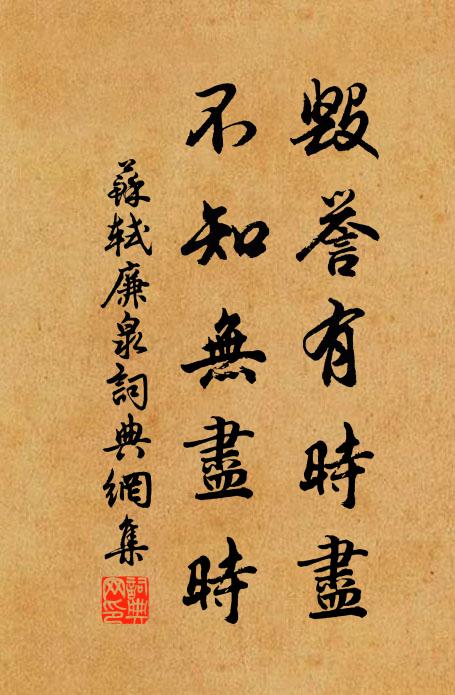 毀譽有時盡
不知無盡時
蘇軾廉泉詞典網集
詞典
网印